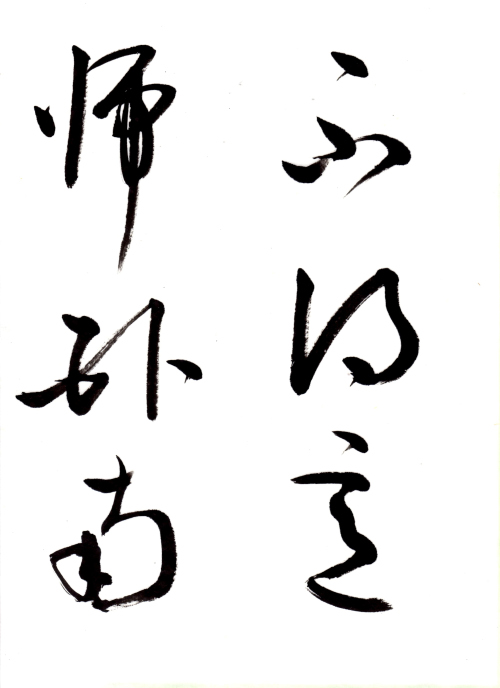 不得意
歸卧南